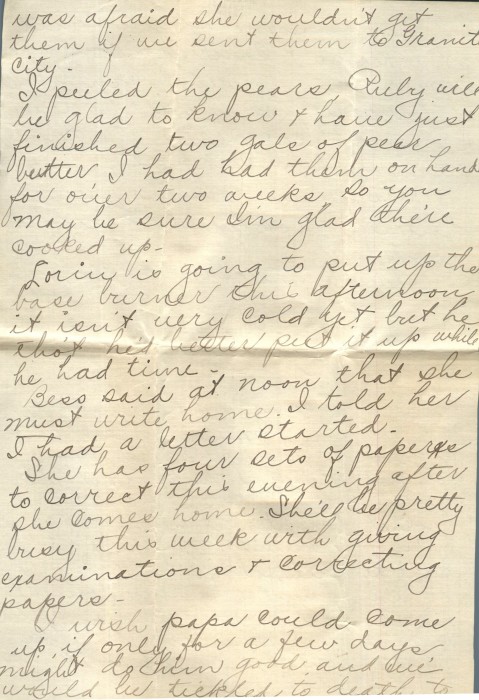 was afraid she wouldn't get
them if we sent them to Granit
City.
I peeled the pears, Ruby will
be glad to know & have just
finished two gals of pear
butter. I had had them on hand
for over two weeks, so you
may be sure I'm glad there
cooked up.
is going to put up the
base burner this afternoon
it isn't very cold yet but he
tho't he'd better put it up while
he had time.
Bess said at noon that she
must write home. I told her
I had a letter started.
She has four sets of papers
to correct this evening after
she comes home. She'll be pretty
busy this week with giving
examinations & correcting
papers.
I wish papa could come
up if only for a few days
might do him good and we'd
would be tickled to death to